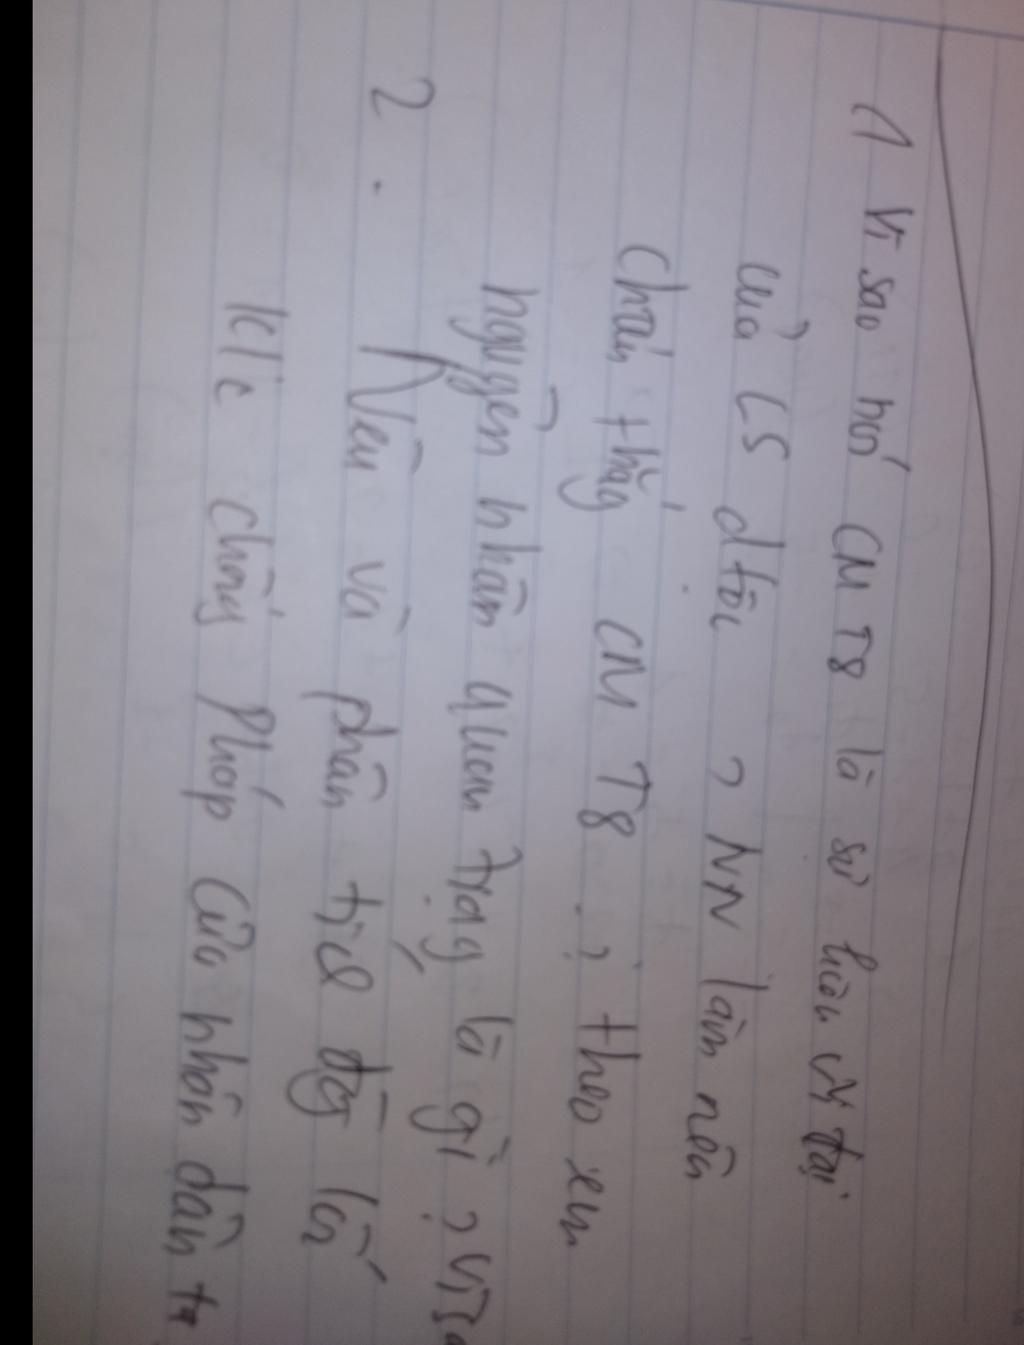 1 Vì sao nói CM T8 là sự kiện vĩ đại
của LS dtộc ? NN làm nên
chiến thắng CM T8 ? theo em
nguyên nhân quan trọng là gì ? Vì sa
2. Nêu và phân tích đg lối
k/c chống Pháp của nhân dân ta